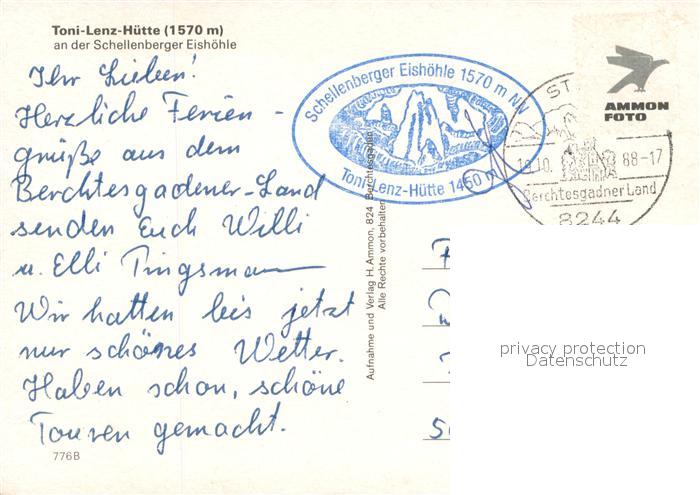 Toni-Lenz-Hütte (1570 m)
an der Schellenberger Eishöhle
Ihr Lieben!
Herzliche Ferien-
grüße aus dem
Berchtesgadener-Land
senden Euch Willi
u. Elli Tingsmann
Wir hatten bis jetzt
nur schönes Wetter.
Haben schon, schöne
Touren gemacht.
776B
Schellenberger Eishöhle 1570 m NN
Toni-Lenz-Hütte 1450 m
Aufnahme und Verlag H. Ammon, 824 Berchtesgaden
Alle Rechte vorbehalten
AMMON
FOTO
ST
10. 88-17
Berchtesgadner Land
8244
privacy protection
Datenschutz